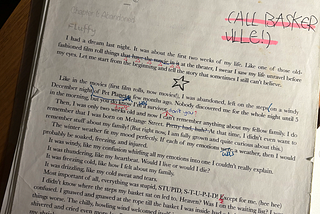 CALL BASKER
VILLE!)
I had a dream last night. It was about the first two weeks of my life. Like one of those old-
fashioned film roll things that have the movie in it at the theater, I swear I saw my life unravel before
my eyes. Let me start from the beginning and tell the story that sometimes I still can't believe.
Like in the movies (first film rolls, now movies), I was abandoned, left on the steps on a windy
December night of Pet
in the morning, but you do know I'm a survivor, don't you?
Then, I was only two weeks old and now I can't remember anything about my fellow family. I do
remember that I was born on Melange Street. Pretty bad, huh? At that time, I didn't even want to
remember stuff about my family! (But right now, I am fully grown and quite curious about you!)
The winter weather fit my mood perfectly. If each of my emotions was a weather, then I would
probably be soaked, freezing, and injured.
It was windy, like my confusion whirling all my emotions into one I couldn't really explain.
It was thundering, like my heartbeat. Would I live or would I die?
It was freezing cold, like how I felt about my family.
It was drizzling, like my cold swear and tears.
Most important of all, everything was stupid, STUPID, S-T-U-P-I-D! Except for me, (hee hee)
confused. Where were the steps my basket sat on (led to, Heaven? Was I in the waiting line? I
things worse. The chilly, howling wind welcomed
shivered and cried even more